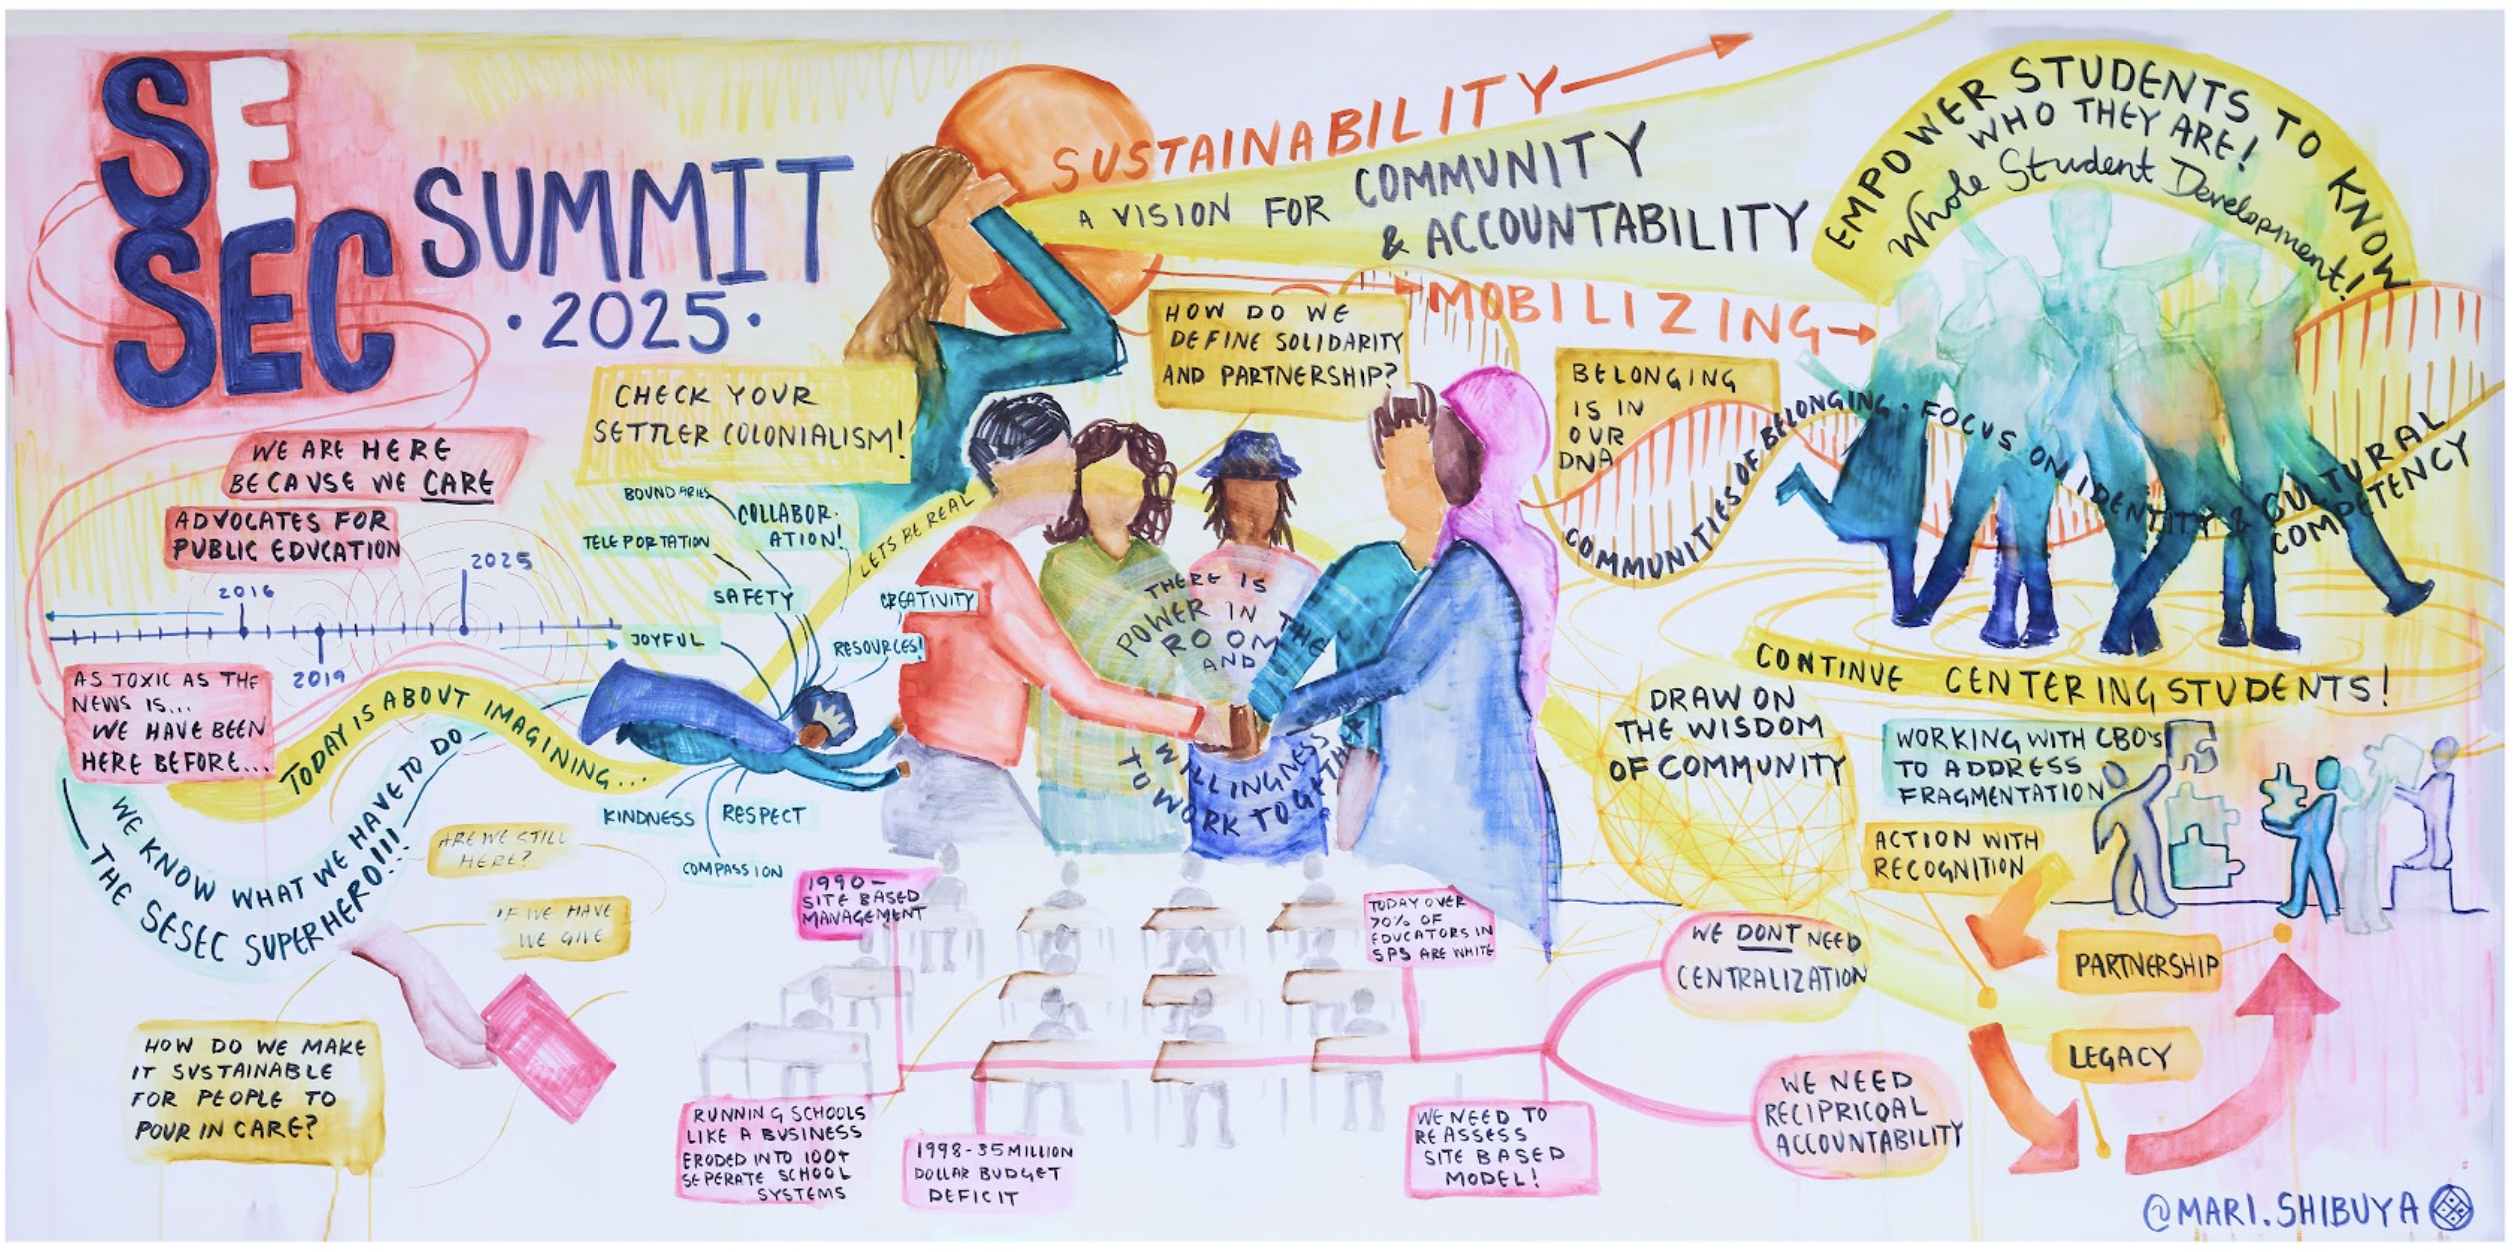 SE
SEC
SUMMIT
· 2025 ·
WE ARE HERE
BECAUSE WE CARE
ADVOCATES FOR
PUBLIC EDUCATION
2016
2025
2019
AS TOXIC AS THE
NEWS IS...
WE HAVE BEEN
HERE BEFORE...
TODAY IS ABOUT IMAGINING...
WE KNOW WHAT WE HAVE TO DO
THE SESEC SUPERHERO!!!
ARE WE STILL
HERE?
IF WE HAVE
WE GIVE
HOW DO WE MAKE
IT SUSTAINABLE
FOR PEOPLE TO
POUR IN CARE?
CHECK YOUR
SETTLER COLONIALISM!
BOUNDARIES
COLLABOR-
ATION!
TELEPORTATION
SAFETY
JOYFUL
CREATIVITY
RESOURCES!
KINDNESS
RESPECT
COMPASSION
LETS BE REAL
SUSTAINABILITY
A VISION FOR COMMUNITY
& ACCOUNTABILITY
MOBILIZING
HOW DO WE
DEFINE SOLIDARITY
AND PARTNERSHIP?
THERE IS
POWER IN THE
ROOM
AND
WILLINGNESS
TO WORK TOGETHER
BELONGING
IS IN
OUR
DNA
COMMUNITIES OF BELONGING · FOCUS ON IDENTITY & CULTURAL
COMPETENCY
EMPOWER STUDENTS TO KNOW
WHO THEY ARE!
Whole Student Development!
CONTINUE CENTERING STUDENTS!
DRAW ON
THE WISDOM
OF COMMUNITY
WORKING WITH CBO'S
TO ADDRESS
FRAGMENTATION
ACTION WITH
RECOGNITION
PARTNERSHIP
LEGACY
1990-
SITE BASED
MANAGEMENT
RUNNING SCHOOLS
LIKE A BUSINESS
ERODED INTO 100+
SEPERATE SCHOOL
SYSTEMS
1998-35 MILLION
DOLLAR BUDGET
DEFICIT
TODAY OVER
70% OF
EDUCATORS IN
SPS ARE WHITE
WE NEED TO
REASSESS
SITE BASED
MODEL!
WE DONT NEED
CENTRALIZATION
WE NEED
RECIPRICOAL
ACCOUNTABILITY
@MARI.SHIBUYA